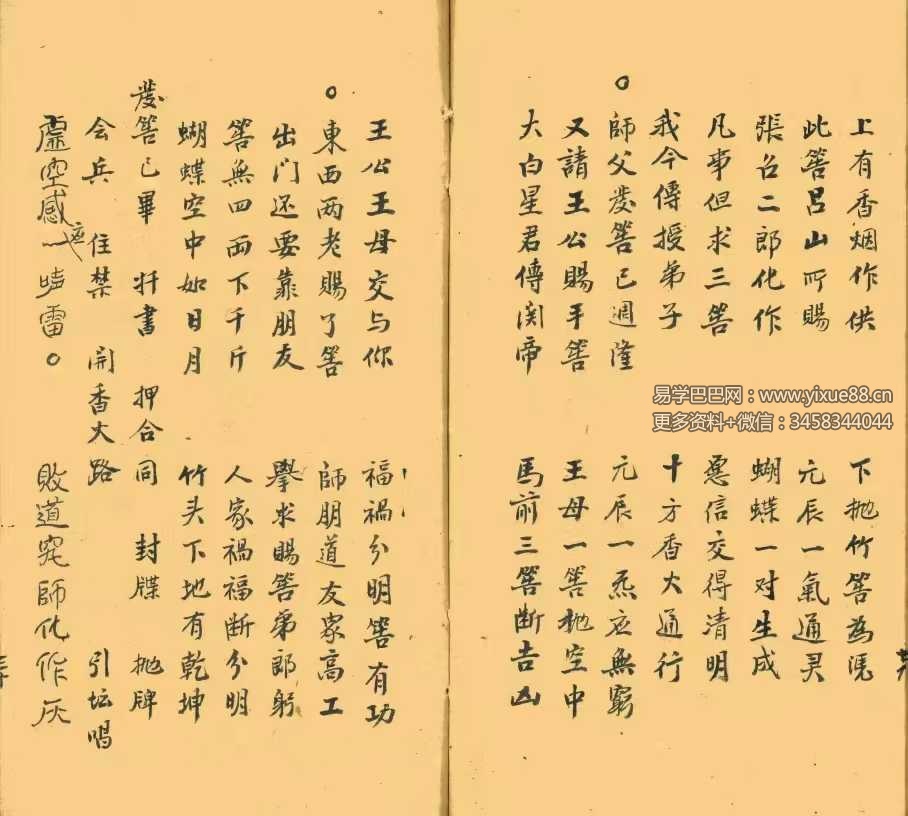 上有香烟作供 下抛竹筶為凴
此筶吕山所賜 元辰一氣通灵
張召二郎化作 蝴蝶一对生成
凡事但求三筶 悪信交得清明
我今傳授弟子 十方香火通行
○師父發筶已週隆 元辰一炁应無窮
又請王公賜平筶 王母一筶抛空中
大白星君傳関帝 馬前三筶断吉凶
王公王母交与你 福禍分明筶有功
○東西两老賜了筶 師朋道友众高工
出门还要靠朋友 擧求賜筶弟郎躬
筶無四両下千斤 人家禍福断分明
蝴蝶空中如日月 竹头下地有乾坤
發筶已畢 扦書 押合同 封牒 抛牌
会兵 住禁 開香火路 引坛唱
虚空感应一声雷○ 敗道冤師化作灰
易学巴巴网：www.yixue88.cn
更多资料+微信：3458344044